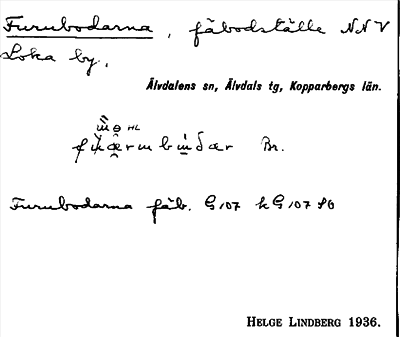 Furubodarna, fäbodställe NNV
Loka by.
Älvdalens sn, Älvdals tg, Kopparbergs län.
HL
Br.
Furubodarna fäb. G 107 k G 107 SO
HELGE LINDBERG 1936.